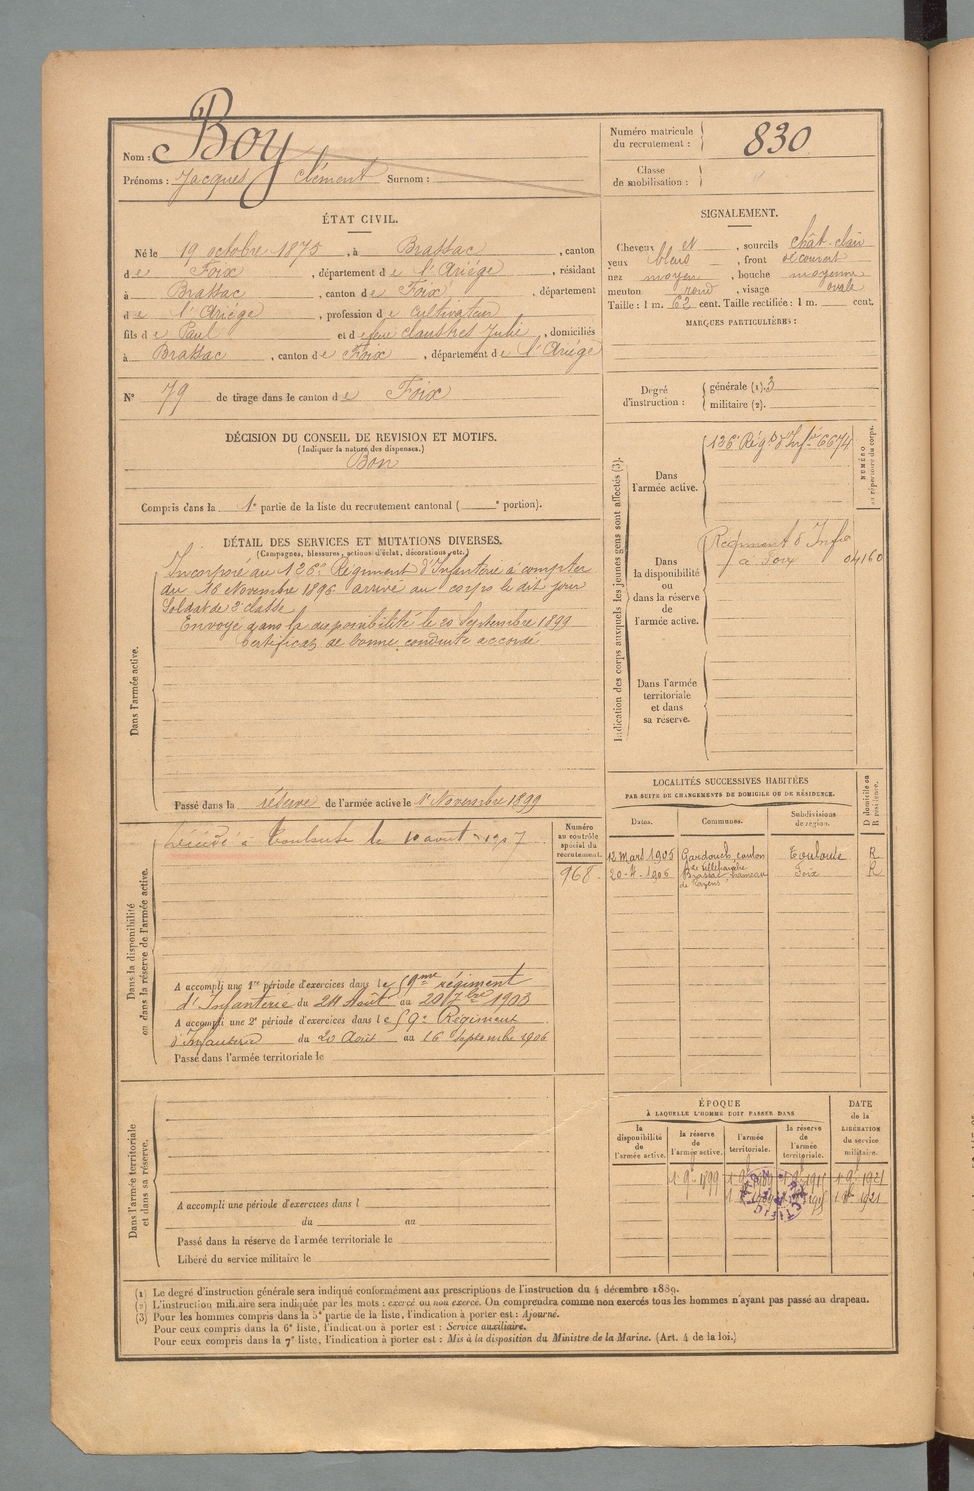 Nom : Boy
Prénoms : Jacques Clément Surnom :
ÉTAT CIVIL.
Né le 19 octobre 1875, à Brassac, canton
de Foix, département de l'Ariège, résidant
à Brassac, canton de Foix, département
de l'Ariège, profession de cultivateur
fils de Paul et de feue Claustres Julie, domiciliés
à Brassac, canton de Foix, département de l'Ariège
N° 79 de tirage dans le canton de Foix
DÉCISION DU CONSEIL DE REVISION ET MOTIFS.
(Indiquer la nature des dispenses.)
Bon
Compris dans la 1e partie de la liste du recrutement cantonal ( e portion).
DÉTAIL DES SERVICES ET MUTATIONS DIVERSES.
(Campagnes, blessures, actions d'éclat, décorations, etc.)
Dans l'armée active.
Incorporé au 126e Régiment d'Infanterie à compter
du 16 Novembre 1896 arrivé au corps le dit jour
Soldat de 2e classe
Envoyé dans la disponibilité le 20 Septembre 1899
Certificat de bonne conduite accordé
Passé dans la réserve de l'armée active le 1er Novembre 1899
Dans la disponibilité
ou dans la réserve de l'armée active.
Décédé à Toulouse le 10 août 1907
Numéro
au contrôle
spécial du
recrutement.
968
A accompli une 1re période d'exercices dans le 59me régiment
d'Infanterie du 24 Août au 20 7bre 1903
A accompli une 2e période d'exercices dans le 59e Régiment
d'Infanterie du 20 Août au 16 Septembre 1906
Passé dans l'armée territoriale le
Dans l'armée territoriale
et dans sa réserve.
A accompli une période d'exercices dans l
du au
Passé dans la réserve de l'armée territoriale le
Libéré du service militaire le
Numéro matricule
du recrutement : 830
Classe
de mobilisation :
SIGNALEMENT.
Cheveux et, sourcils chât-clair
yeux bleus, front découvert
nez moyen, bouche moyenne
menton rond, visage ovale
Taille : 1 m. 62 cent. Taille rectifiée : 1 m. cent.
MARQUES PARTICULIÈRES :
Degré
d'instruction :
générale (1). 3
militaire (2).
Indication des corps auxquels les jeunes gens sont affectés (3).
NUMÉRO
au répertoire du corps.
Dans
l'armée active.
126e Régt d'Infie 6674
Dans
la disponibilité
ou
dans la réserve
de
l'armée active.
Régiment d'Infie
à Foix 04160
Dans l'armée
territoriale
et dans
sa réserve.
LOCALITÉS SUCCESSIVES HABITÉES
PAR SUITE DE CHANGEMENTS DE DOMICILE OU DE RÉSIDENCE.
D domicile ou
R résidence.
Dates. Communes. Subdivisions
de région.
12 Mars 1905 Gardouch, canton Toulouse R
de Villefranche
20-4-1906 Brassac, hameau Foix R
de Cazens
ÉPOQUE
À LAQUELLE L'HOMME DOIT PASSER DANS
DATE
de la
LIBÉRATION
du service
militaire.
la
disponibilité
de
l'armée active.
la réserve
de
l'armée active.
l'armée
territoriale.
la réserve
de
l'armée
territoriale.
RECTIFICATION
(1) Le degré d'instruction générale sera indiqué conformément aux prescriptions de l'instruction du 4 décembre 1889.
(2) L'instruction militaire sera indiquée par les mots : exercé ou non exercé. On comprendra comme non exercés tous les hommes n'ayant pas passé au drapeau.
(3) Pour les hommes compris dans la 5e partie de la liste, l'indication à porter est : Ajourné.
Pour ceux compris dans la 6e liste, l'indication à porter est : Service auxiliaire.
Pour ceux compris dans la 7e liste, l'indication à porter est : Mis à la disposition du Ministre de la Marine. (Art. 4 de la loi.)